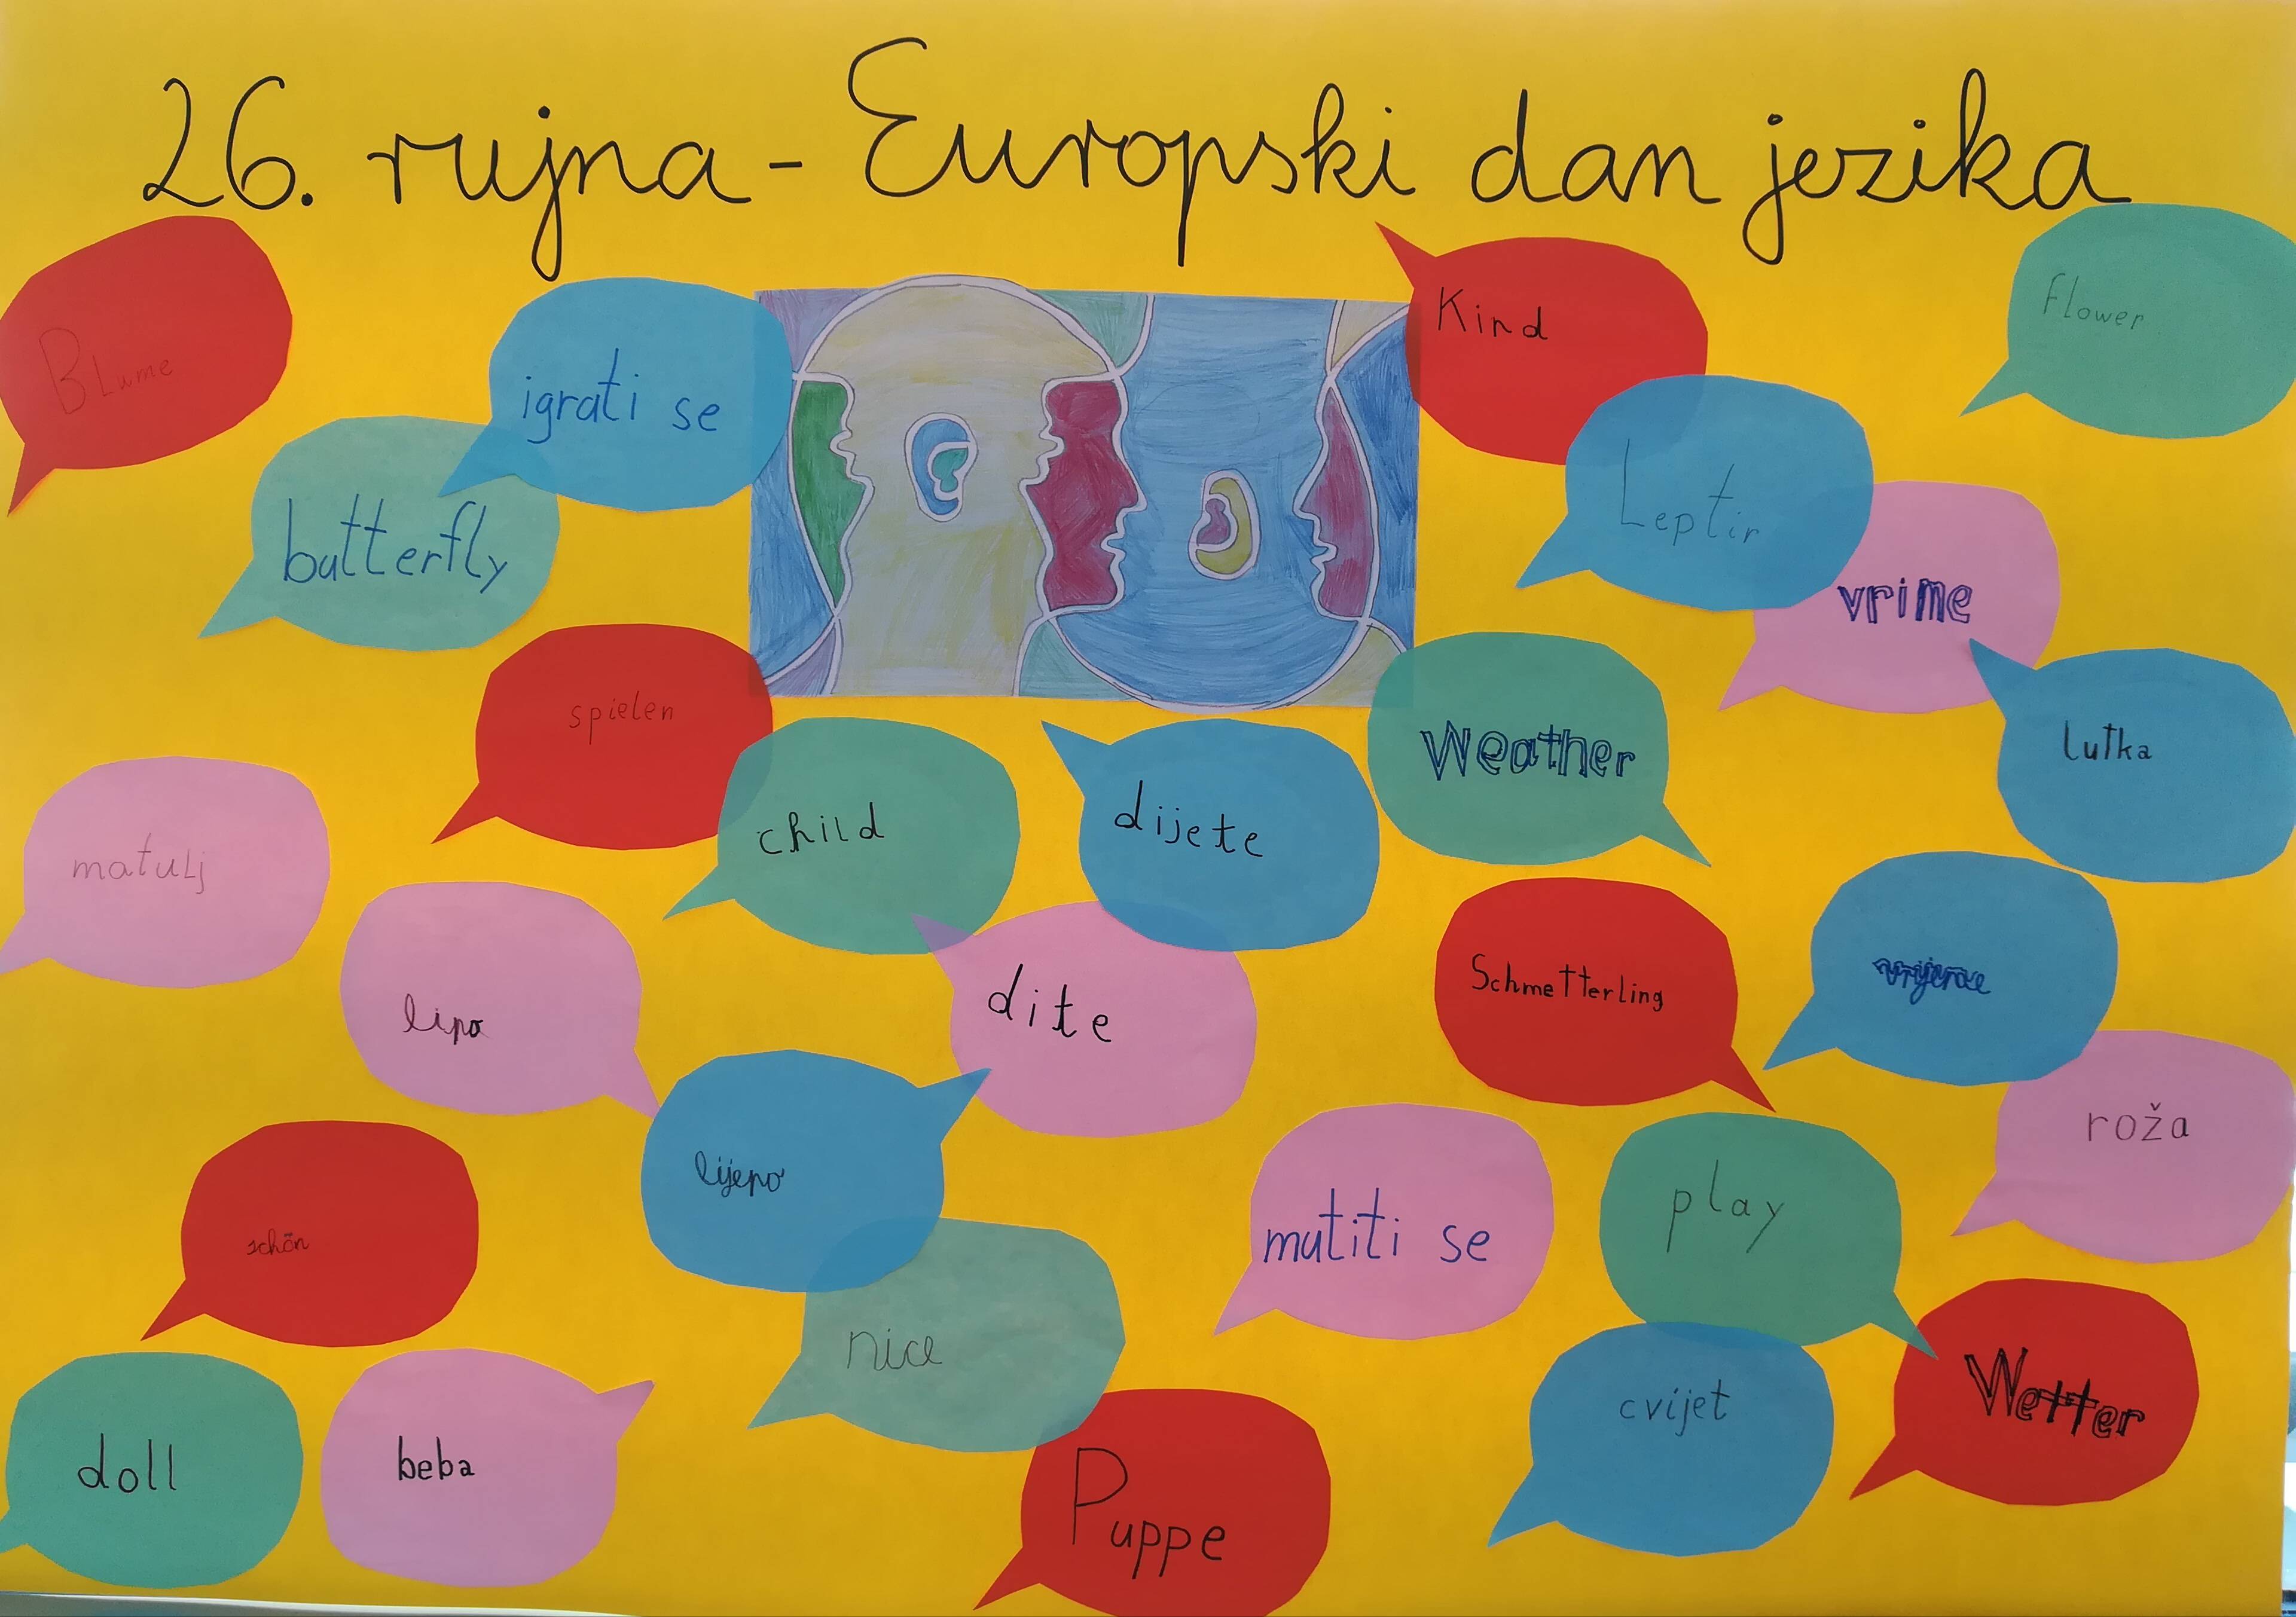 26. rujna - Europski dan jezika
Blume
igrati se
Kind
flower
butterfly
Leptir
vrime
spielen
Weather
lutka
child
dijete
matulj
lipo
dite
Schmetterling
vrijeme
lijepo
roža
schön
mutiti se
play
nice
Wetter
cvijet
doll
beba
Puppe